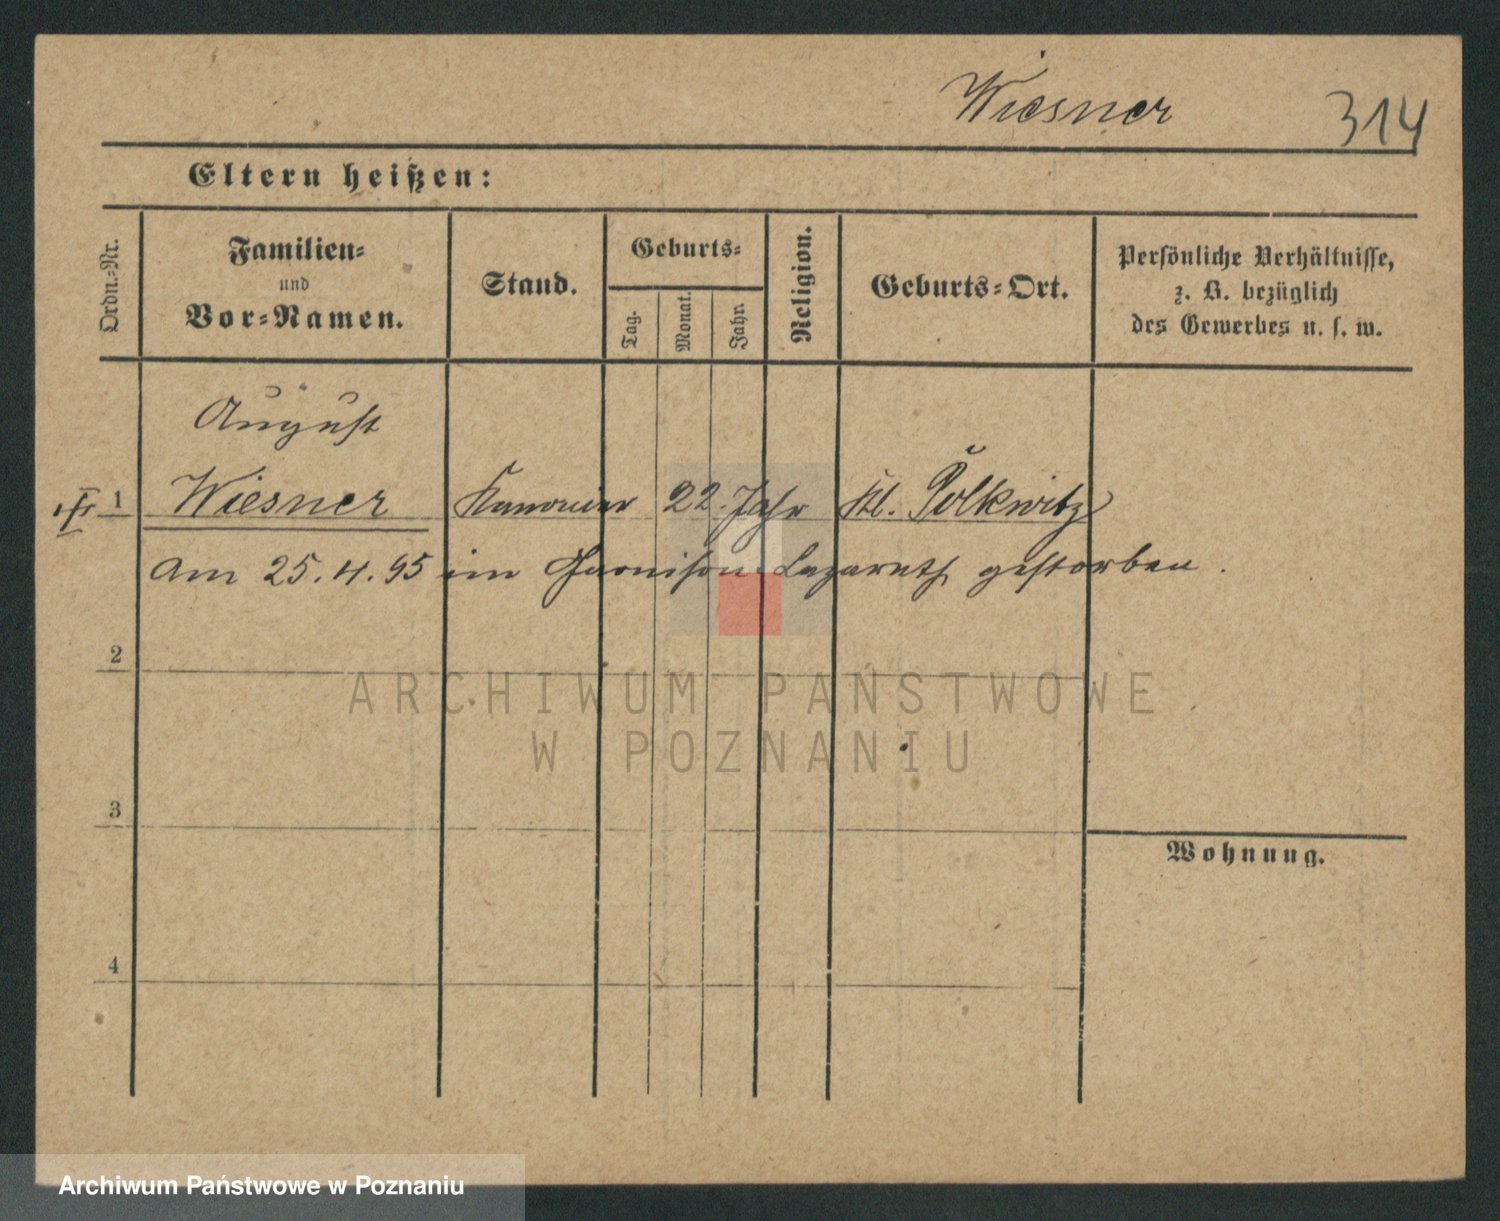 Wiesner 314
Eltern heißen:
Ordn.-Nr.
Familien-
und
Vor-Namen.
Stand.
Geburts-
Tag.
Monat.
Jahr.
Religion.
Geburts-Ort.
Persönliche Verhältnisse,
z. B. bezüglich
des Gewerbes u. s. w.
August
1 Wiesner Kanonier 22 Jahr Kl. Polkwitz
am 25.4.95 im Garnison-Lazareth gestorben.
2
ARCHIWUM PAŃSTWOWE
W POZNANIU
3
Wohnung.
4
Archiwum Państwowe w Poznaniu